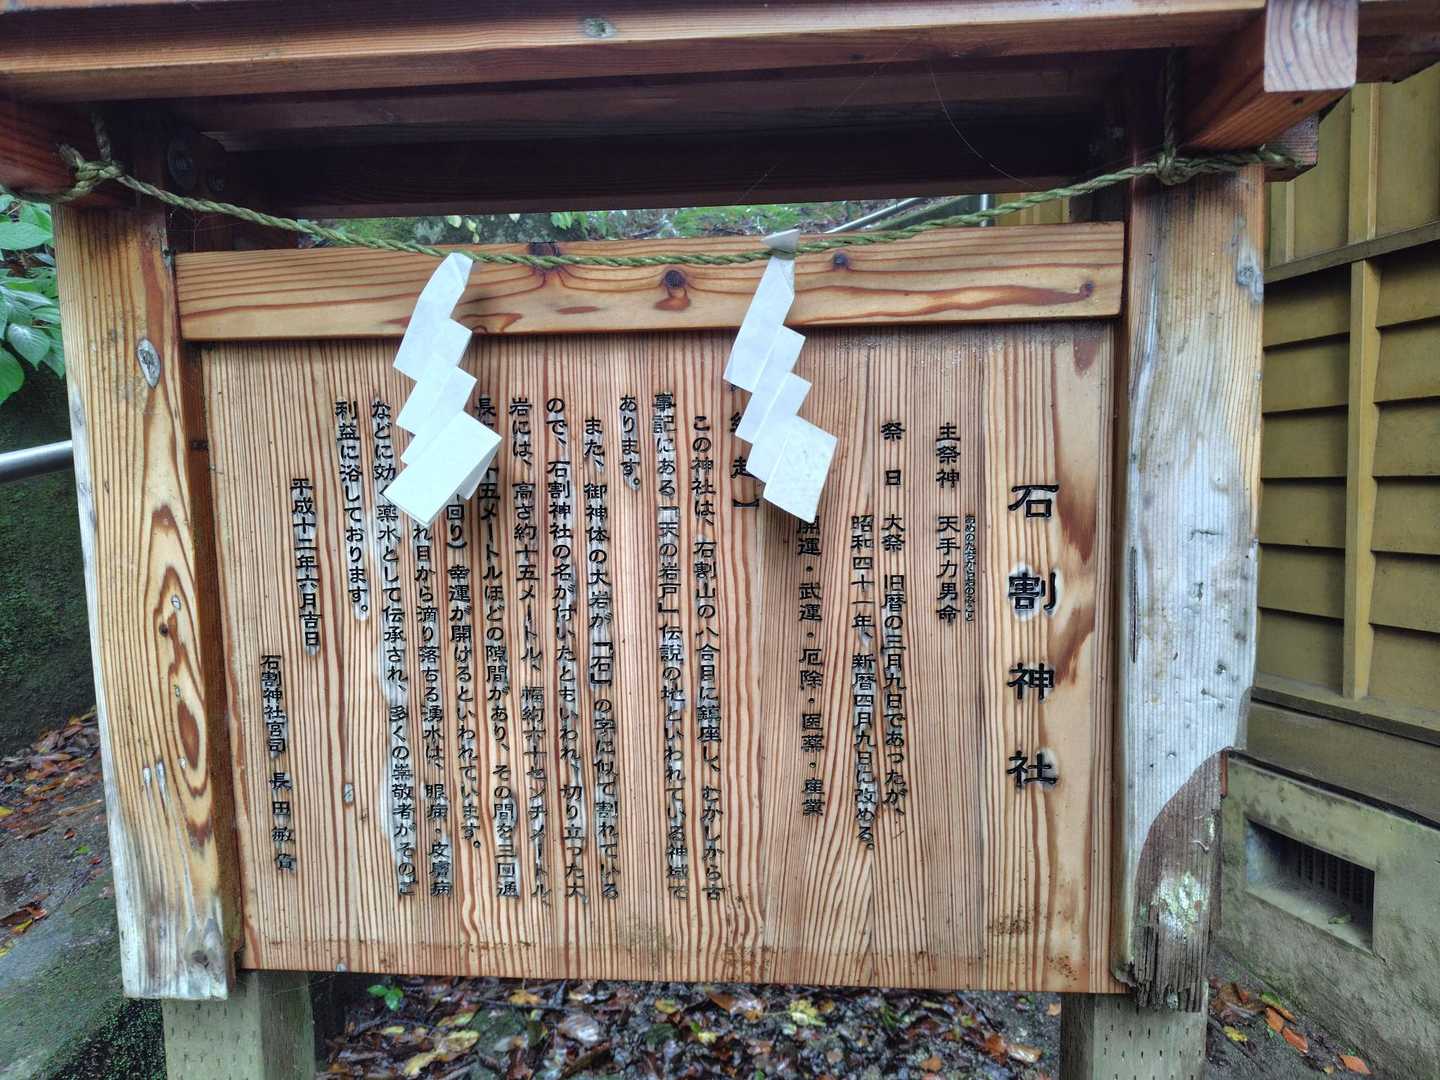 石割神社
主祭神　天手力男命
あめのたぢからおのみこと
祭　日　大祭　旧暦の三月九日であったが、
昭和四十一年、新暦四月九日に改める。
開運・武運・厄除・医薬・産業
起】
この神社は、石割山の八合目に鎮座し、むかしから古
事記にある「天の岩戸」伝説の地といわれている神域で
あります。
また、御神体の大岩が「石」の字に似て割れている
ので、石割神社の名が付いたともいわれ、切り立った大
岩には、高さ約十五メートル、幅約六十センチメートル、
長 十五メートルほどの隙間があり、その間を三回通
回り）幸運が開けるといわれています。
れ目から滴り落ちる湧水は、眼病・皮膚病
などに効 薬水として伝承され、多くの崇敬者がその
利益に浴しております。
平成十二年六月吉日
石割神社宮司　長田敏